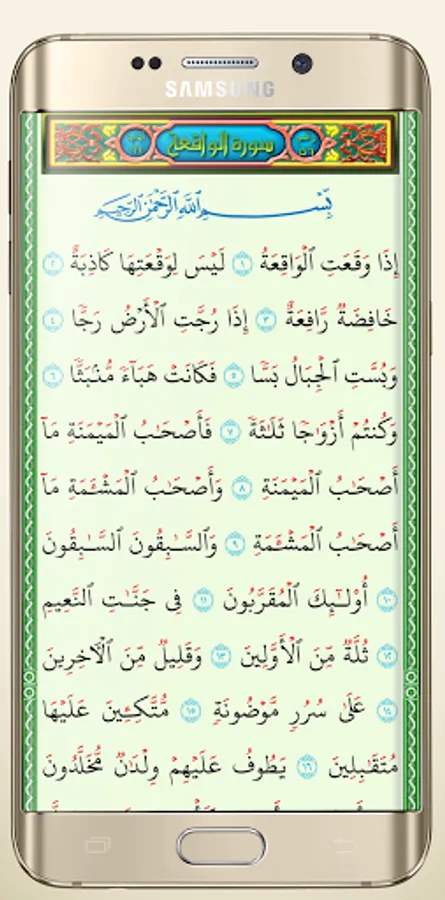 SAMSUNG
سورة الواقعة
بِسْمِ اللَّهِ الرَّحْمَٰنِ الرَّحِيمِ
إِذَا وَقَعَتِ ٱلْوَاقِعَةُ ١ لَيْسَ لِوَقْعَتِهَا كَاذِبَةٌ ٢
خَافِضَةٌ رَّافِعَةٌ ٣ إِذَا رُجَّتِ ٱلْأَرْضُ رَجًّا ٤
وَبُسَّتِ ٱلْجِبَالُ بَسًّا ٥ فَكَانَتْ هَبَآءً مُّنۢبَثًّا ٦
وَكُنتُمْ أَزْوَٰجًا ثَلَٰثَةً ٧ فَأَصْحَٰبُ ٱلْمَيْمَنَةِ مَآ
أَصْحَٰبُ ٱلْمَيْمَنَةِ ٨ وَأَصْحَٰبُ ٱلْمَشْـَٔمَةِ مَآ
أَصْحَٰبُ ٱلْمَشْـَٔمَةِ ٩ وَٱلسَّٰبِقُونَ ٱلسَّٰبِقُونَ
١٠ أُو۟لَٰٓئِكَ ٱلْمُقَرَّبُونَ ١١ فِى جَنَّٰتِ ٱلنَّعِيمِ
١٢ ثُلَّةٌ مِّنَ ٱلْأَوَّلِينَ ١٣ وَقَلِيلٌ مِّنَ ٱلْـَٔاخِرِينَ
١٤ عَلَىٰ سُرُرٍ مَّوْضُونَةٍ ١٥ مُّتَّكِـِٔينَ عَلَيْهَا
مُتَقَٰبِلِينَ ١٦ يَطُوفُ عَلَيْهِمْ وِلْدَٰنٌ مُّخَلَّدُونَ